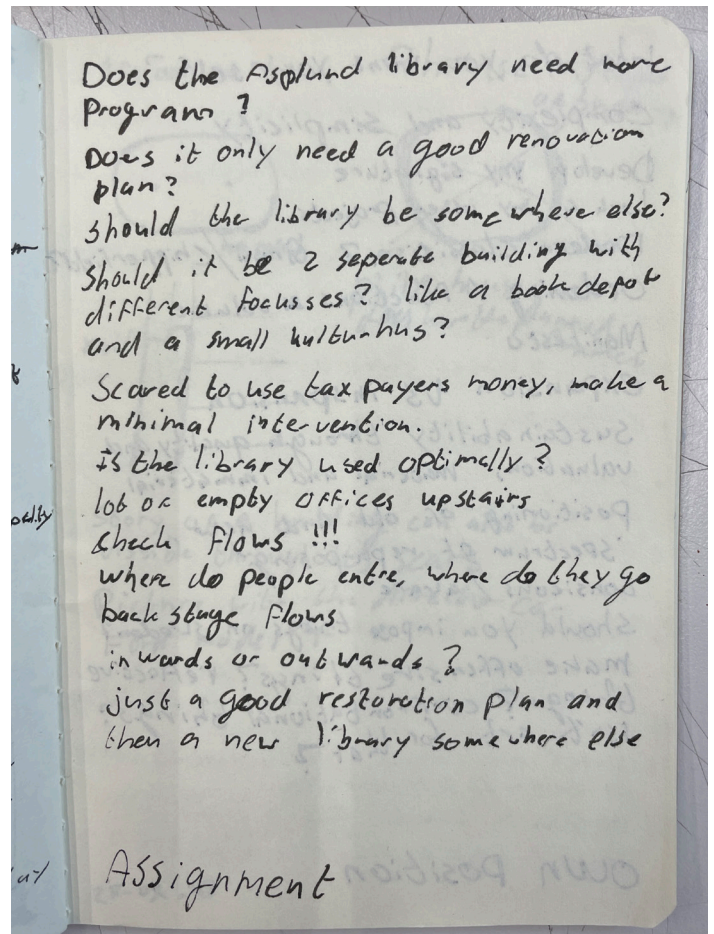 Does the Asplund library need more
program?
Does it only need a good renovation
plan?
should the library be somewhere else?
should it be 2 seperate building with
different focusses? like a book depot
and a small kulturhus?
Scared to use tax payers money, make a
minimal intervention.
Is the library used optimally?
lot of empty offices upstairs
check flows !!!
where do people entre, where do they go
back stage flows
inwards or outwards?
just a good restoration plan and
then a new library somewhere else
Assignment